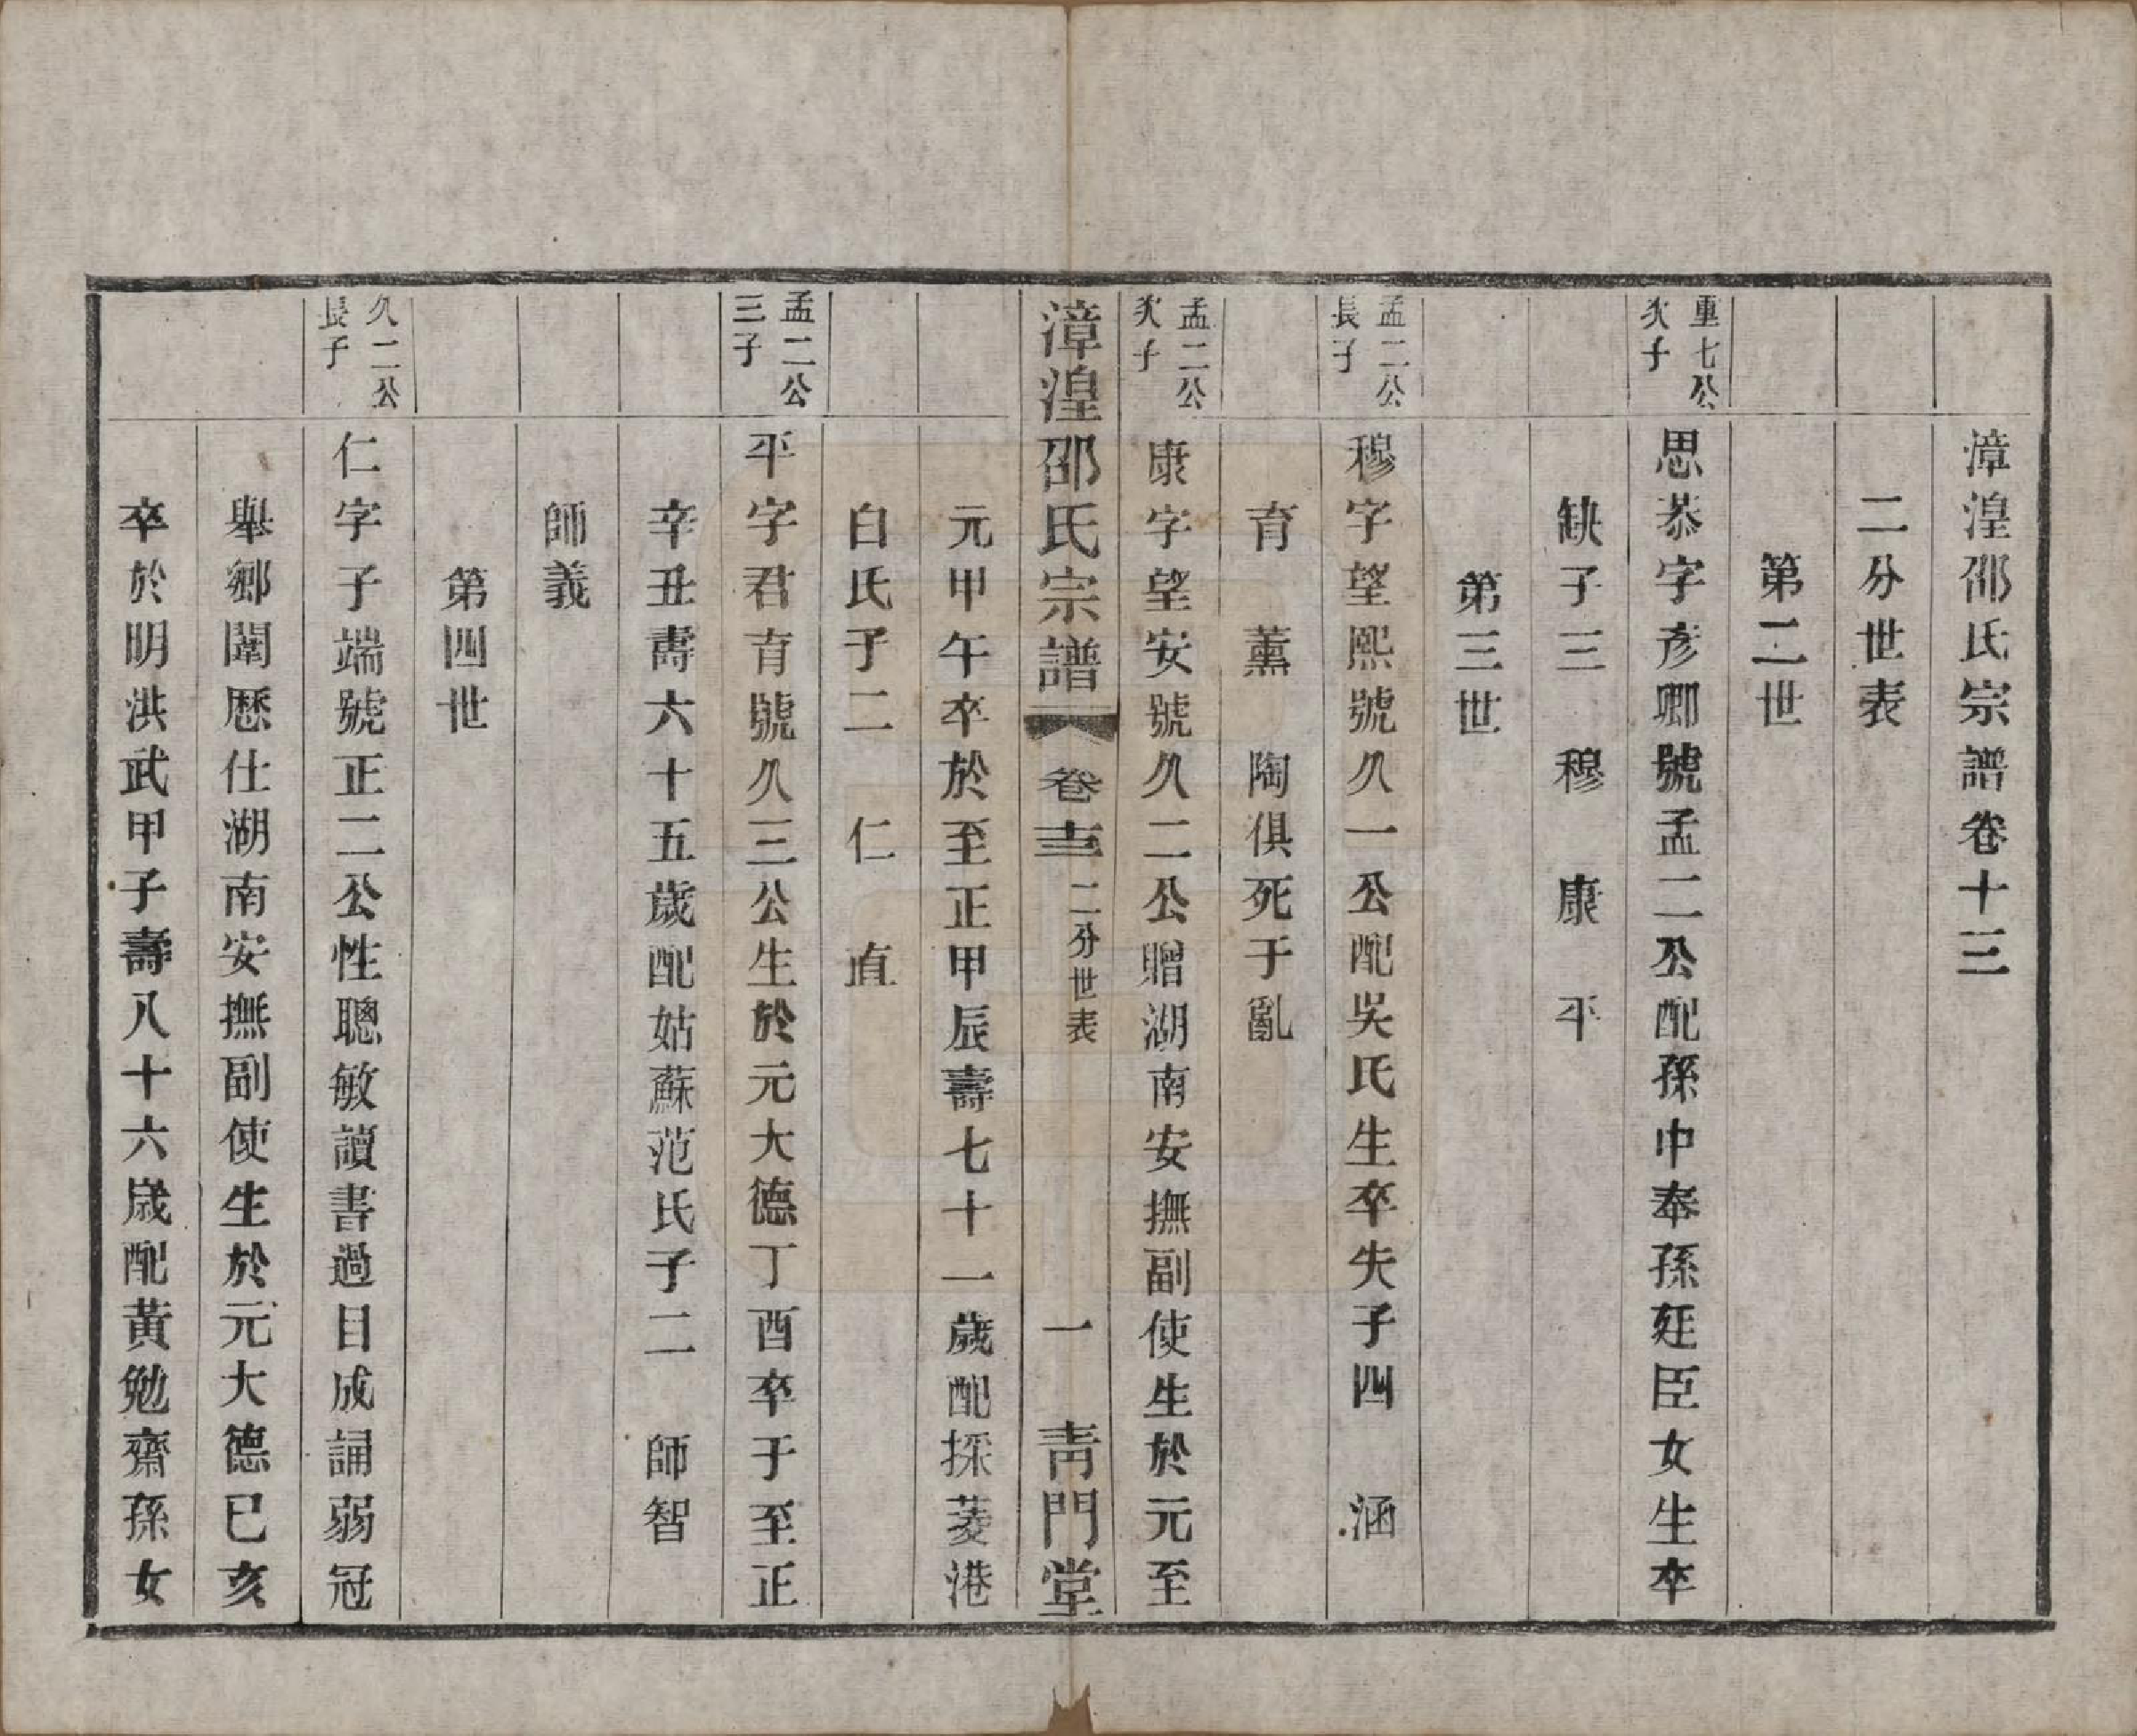 漳湟邵氏宗譜卷十三
二分世表
第二世
重七公
次子
思恭字彥卿號孟二公配孫中奉孫廷臣女生卒
缺子三　穆　康　平
第三世
孟二公
長子
穆字望熙號久一公配吳氏生卒失子四　涵
育　薰　陶俱死于亂
孟二公
次子
康字望安號久二公贈湖南安撫副使生於元至
漳湟邵氏宗譜　卷十三　二分世表　一　靑門堂
元甲午卒於至正甲辰壽七十一歲配採菱港
白氏子二　仁　直
孟二公
三子
平字君育號久三公生於元大德丁酉卒于至正
辛丑壽六十五歲配姑蘇范氏子二　師智
師義
第四世
久二公
長子
仁字子端號正二公性聰敏讀書過目成誦弱冠
舉鄉闈歷仕湖南安撫副使生於元大德已亥
卒於明洪武甲子壽八十六歲配黃勉齋孫女